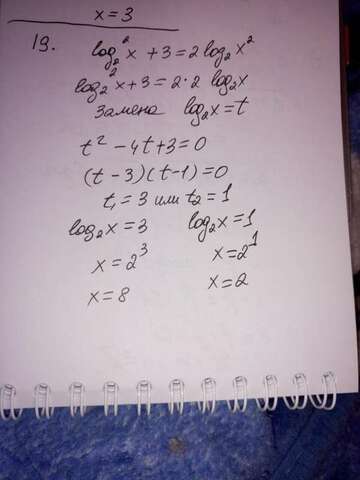 x = 3
19. log₂² x + 3 = 2 log₂ x²
log₂² x + 3 = 2·2 log₂ x
Замена log₂ x = t
t² - 4t + 3 = 0
(t - 3)(t - 1) = 0
t₁ = 3 или t₂ = 1
log₂ x = 3 log₂ x = 1
x = 2³ x = 2¹
x = 8 x = 2